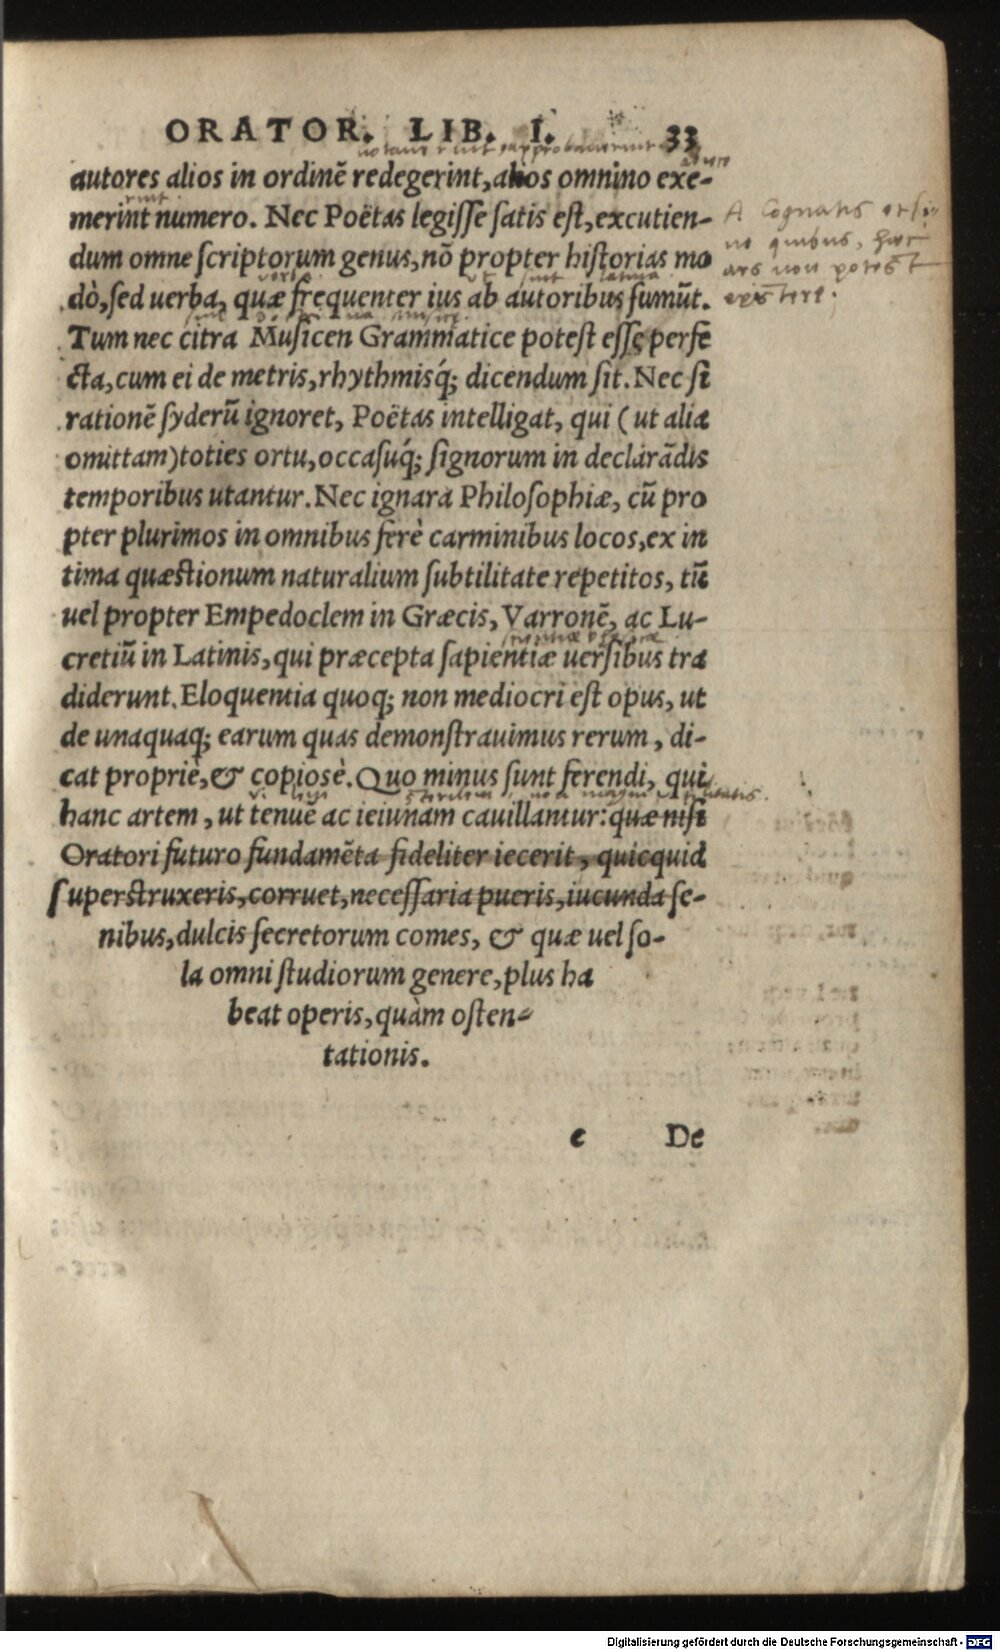 ORATOR. LIB. I. 33
autores alios in ordinē redegerint, alios omnino exe-
merint numero. Nec Poëtas legiſſe ſatis eſt, excutien-
dum omne ſcriptorum genus, nō propter hiſtorias mo
dò, ſed uerba, quæ frequenter ius ab autoribus ſumūt.
Tum nec citra Muſicen Grammatice poteſt eſſe perfe
cta, cum ei de metris, rhythmisq́; dicendum ſit. Nec ſi
rationē ſyderū ignoret, Poëtas intelligat, qui (ut alia
omittam) toties ortu, occaſuq́; ſignorum in declarādis
temporibus utantur. Nec ignara Philoſophiæ, cū pro
pter plurimos in omnibus ferè carminibus locos, ex in
tima quæſtionum naturalium ſubtilitate repetitos, tū
uel propter Empedoclem in Græcis, Varronē, ac Lu-
cretiū in Latinis, qui præcepta ſapientiæ uerſibus tra
diderunt. Eloquentia quoq; non mediocri eſt opus, ut
de unaquaq; earum quas demonſtrauimus rerum, di-
cat propriè, & copiosè. Quo minus ſunt ferendi, qui
hanc artem, ut tenuē ac ieiunam cauillantur: quæ niſi
Oratori futuro fundamēta fideliter iecerit, quicquid
ſuperſtruxeris, corruet, neceſſaria pueris, iucunda ſe-
nibus, dulcis ſecretorum comes, & quæ uel ſo-
la omni ſtudiorum genere, plus ha
beat operis, quàm oſten-
tationis.
e De
A Cognatis
quibus, haec
ars non potest
existere;
Digitalisierung gefördert durch die Deutsche Forschungsgemeinschaft - DFG